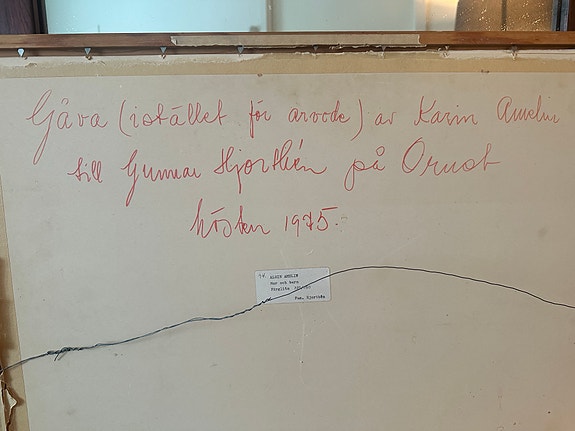 Gåva (istället för arvode) av Karin Amelin
till Gunnar Hjorthén på Orust
hösten 1975.
ALBIN AMELIN
Mor och barn
Färglito
Fam. Hjorthén